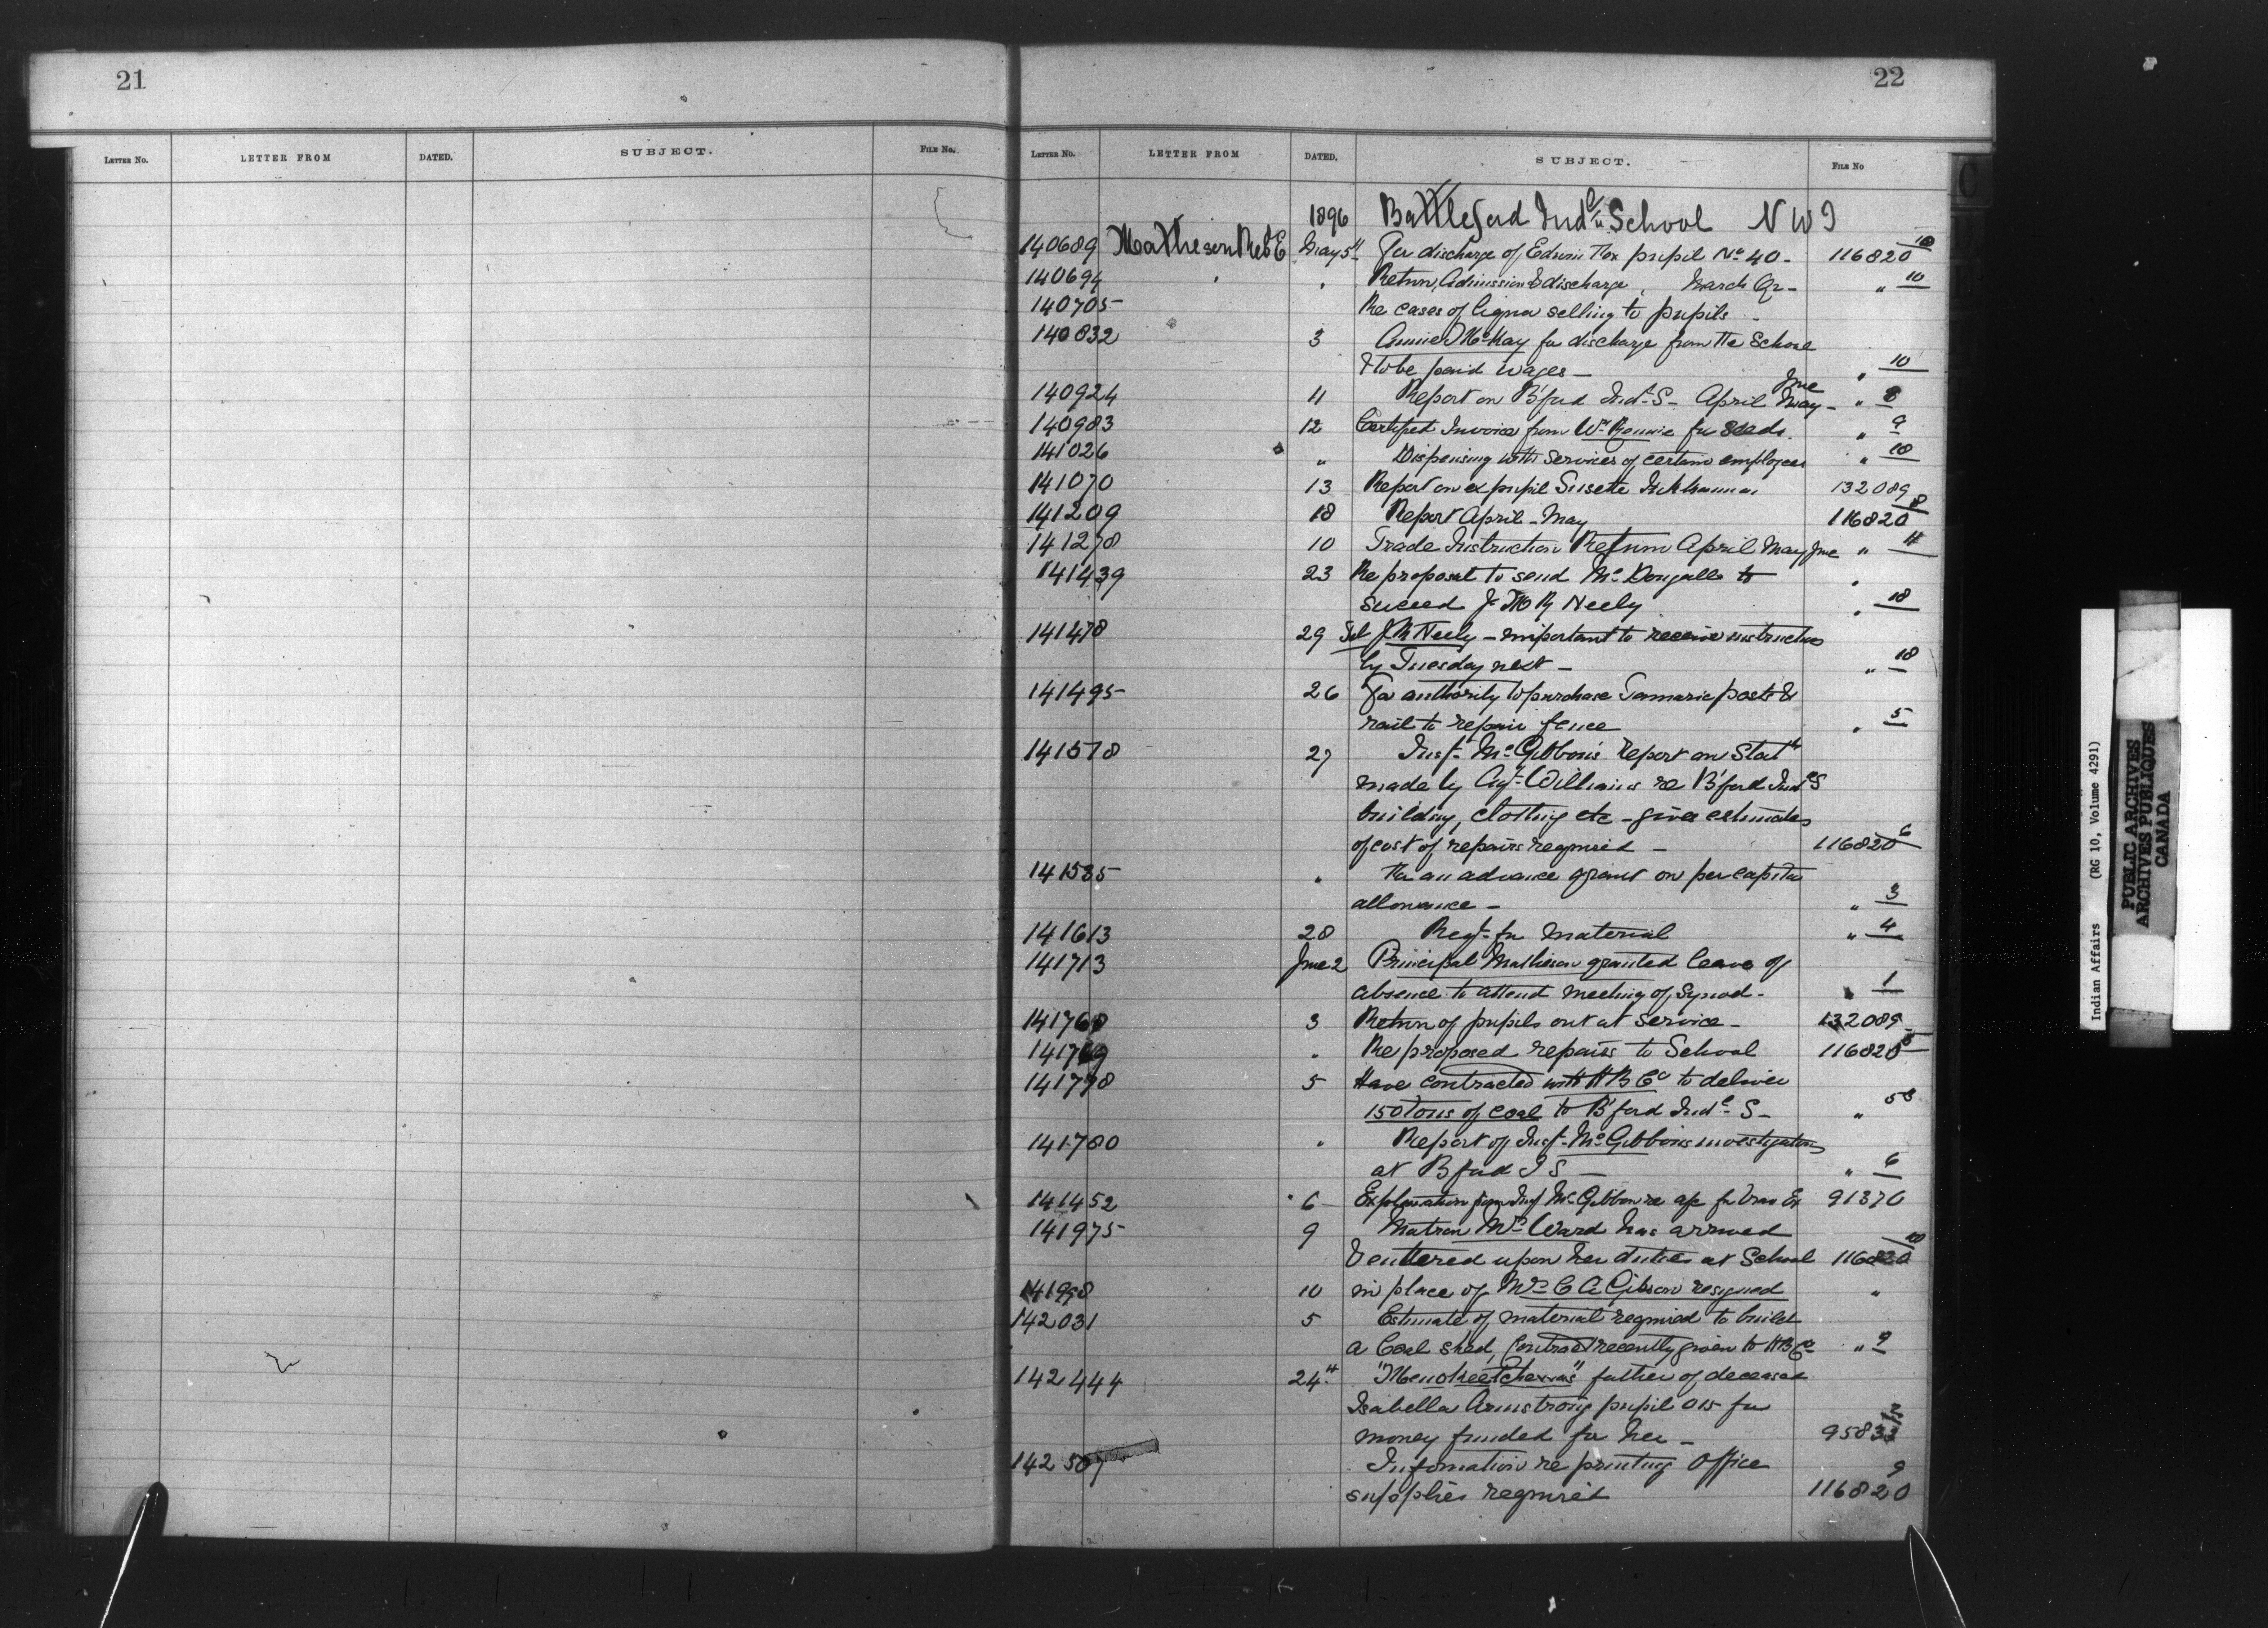 21
22
LETTER NO. LETTER FROM DATED. SUBJECT. FILE NO.
LETTER NO. LETTER FROM DATED. SUBJECT. FILE NO
1896 Battleford Indl School N W T
140689 Matheson Revd E May 5th For discharge of Edwin Fox pupil No 40 - 116820 10
140694 " " Return, Admission & discharge, March Qr - " 10
140705 Re cases of liquor selling to pupils -
140832 3 Annie McKay for discharge from the School
& to be paid wages - " 10
140924 11 Report on B'ford Indl S - April May June - " 8
140983 12 Certified Invoice from Wm Rennie for seeds. " 9
141026 " Dispensing with Services of certain employees " 18
141070 13 Report on ex pupil Susette 132089
141209 18 Report April - May 116820 8
141278 10 Trade Instruction Return April May June " 11
141439 23 Re proposal to send McDougall to "
succeed J Neely " 18
141478 29 Tel Neely - important to receive instructions
by Tuesday next - " 18
141495 26 For authority to purchase Tamarac posts &
rails to repair fence " 5
141578 27 Insp. McGibbon's Report on Statts
made by Agt Williams re B'ford Indl S
building, clothing etc - gives estimates
of cost of repairs required - 116820 6
141585 " For an advance grant on per capita
allowance - " 3
141613 28 Reqt. for Material " 4
141713 June 2 Principal Matheson granted leave of
absence to attend meeting of Synod - " 1
141768 3 Return of pupils out at service - 132089
141769 " Re proposed repairs to School 116820 5
141778 5 Have contracted with H B Co to deliver
150 tons of coal to B'ford Indl S - "
141780 " Report of Insp. McGibbon's investigation
at B'ford I S - " 6
141452 6 Explanation from Insp McGibbon re a/c for Trav Ex 91370
141975 9 Matron Mrs Ward has arrived
& entered upon her duties at School 116820 10
141998 10 in place of Mrs C A Gibson resigned "
142031 5 Estimate of material required to build
a Coal shed, Contract recently given to H B Co " 9
142444 24th father of deceased
Isabella Armstrong pupil 015 for
money funded for her - 95833
142 Information re printing Office
supplies required 116820 9
Indian Affairs (RG 10, Volume 4291)
PUBLIC ARCHIVES
ARCHIVES PUBLIQUES
CANADA